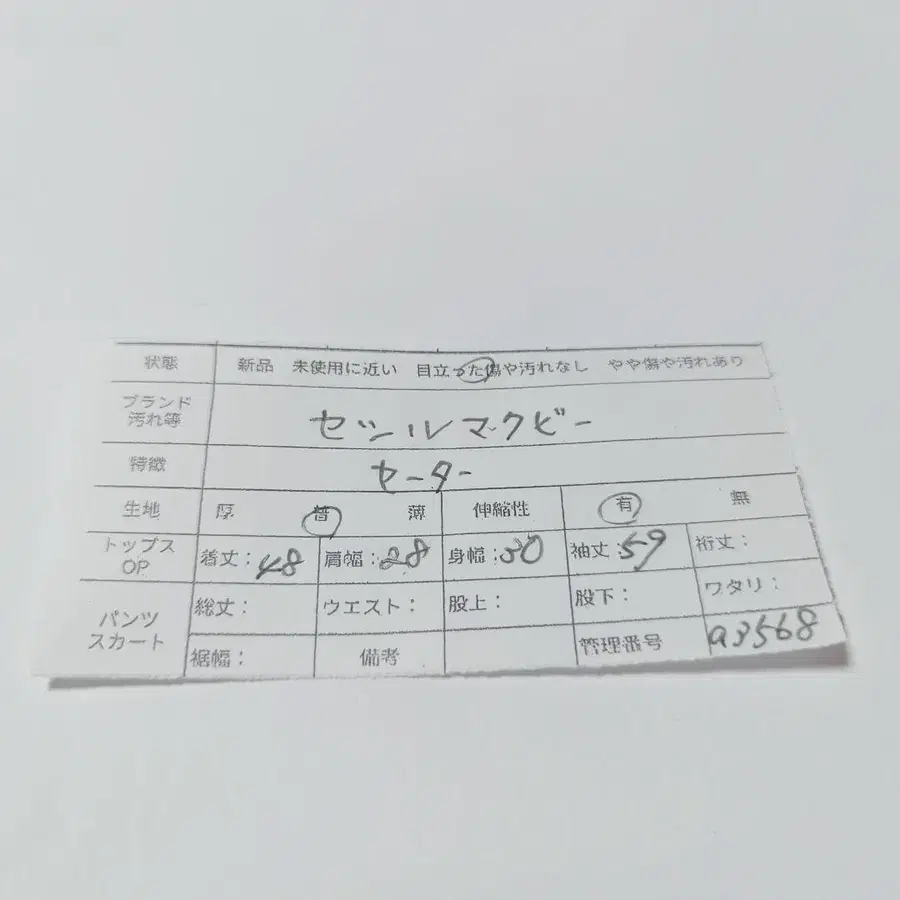 状態 新品 未使用に近い 目立った傷や汚れなし やや傷や汚れあり
ブランド
汚れ等 セシルマクビー
特徴 セーター
生地 厚 普 薄 伸縮性 有 無
トップス
OP 着丈：48 肩幅：28 身幅：30 袖丈：59 裄丈：
パンツ
スカート 総丈： ウエスト： 股上： 股下： ワタリ：
裾幅： 備考 管理番号 a3568